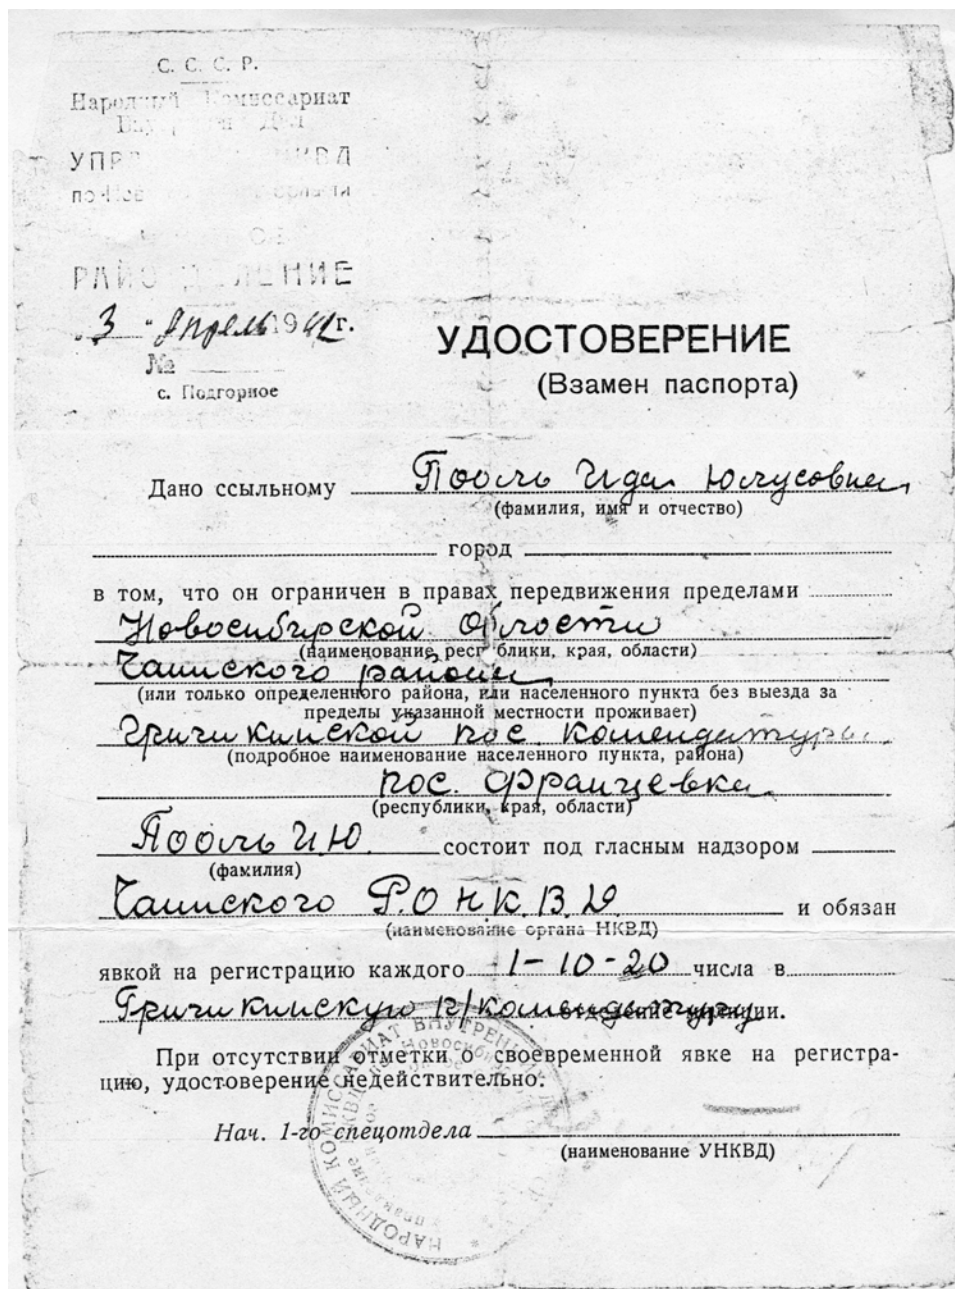 С. С. С. Р.
Народный Комиссариат
Внутренних Дел
УПР НКВД
по Нов области
РАЙОТДЕЛЕНИЕ
„3 " Апрель 1942 г.
№
с. Подгорное
УДОСТОВЕРЕНИЕ
(Взамен паспорта)
Дано ссыльному Тооль Ида Юлусовна
(фамилия, имя и отчество)
город
в том, что он ограничен в правах передвижения пределами
Новосибирской области
(наименование респ блики, края, области)
Чаинского района
(или только определенного района, или населенного пункта без выезда за
пределы указанной местности проживает)
Гричикинской пос. комендатуры
(подробное наименование населенного пункта, района)
пос. Францевка
(республики, края, области)
Тооль И.Ю. состоит под гласным надзором
(фамилия)
Чаинского Р.О Н.К.В.Д и обязан
(наименование органа НКВД)
явкой на регистрацию каждого 1-10-20 числа в
Гричикинскую п/комендатуру отделение милиции.
При отсутствии отметки о своевременной явке на регистра-
цию, удостоверение недействительно.
Нач. 1-го спецотдела
(наименование УНКВД)
НАРОДНЫЙ КОМИССАРИАТ ВНУТРЕННИХ